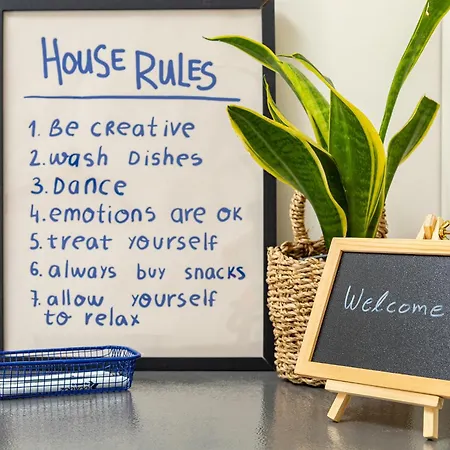 HOUSE RULES
1. Be creative
2. wash dishes
3. Dance
4. emotions are ok
5. treat yourself
6. always buy snacks
7. allow yourself
to relax
Welcome